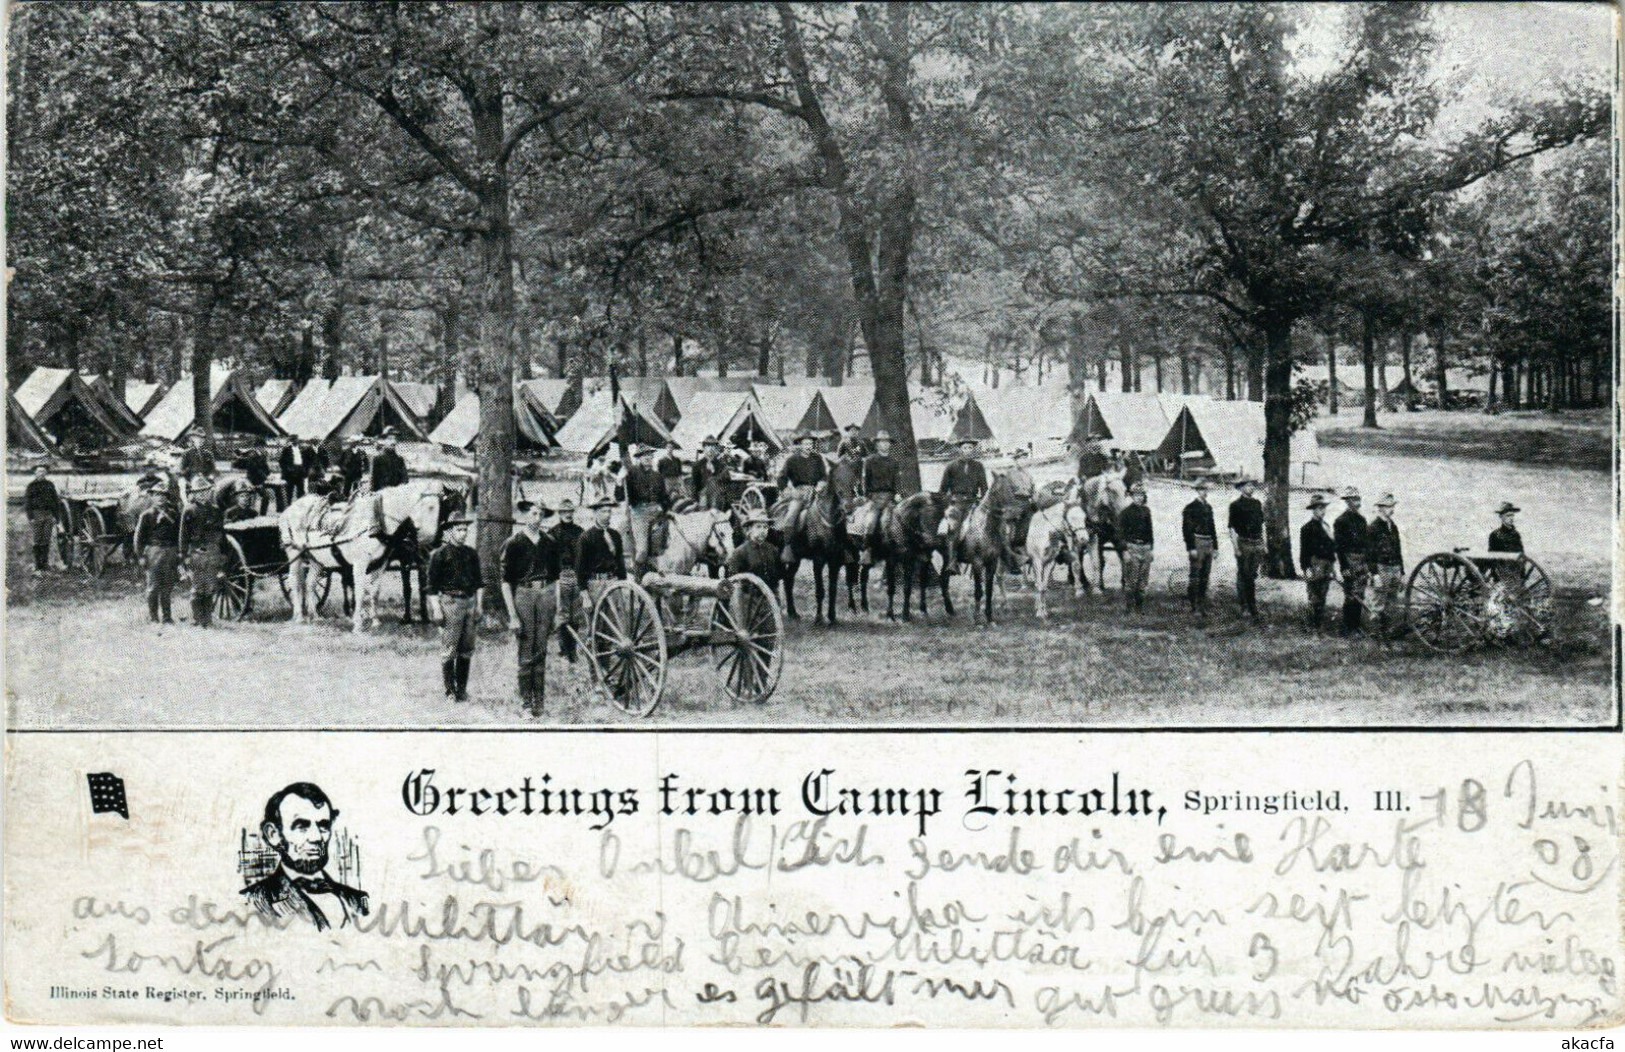 Greetings from Camp Lincoln, Springfield, Ill. 18 Juni
08
Lieber Onkel Ich sende dir eine Karte
aus dem Milittär v Amerrika ich bin seit letzten
Sontag in Springfield beim Milittär für 3 Jahre
noch länger es gefält mir gut gruss
Illinois State Register, Springfield.
akacfa
akacfa.com